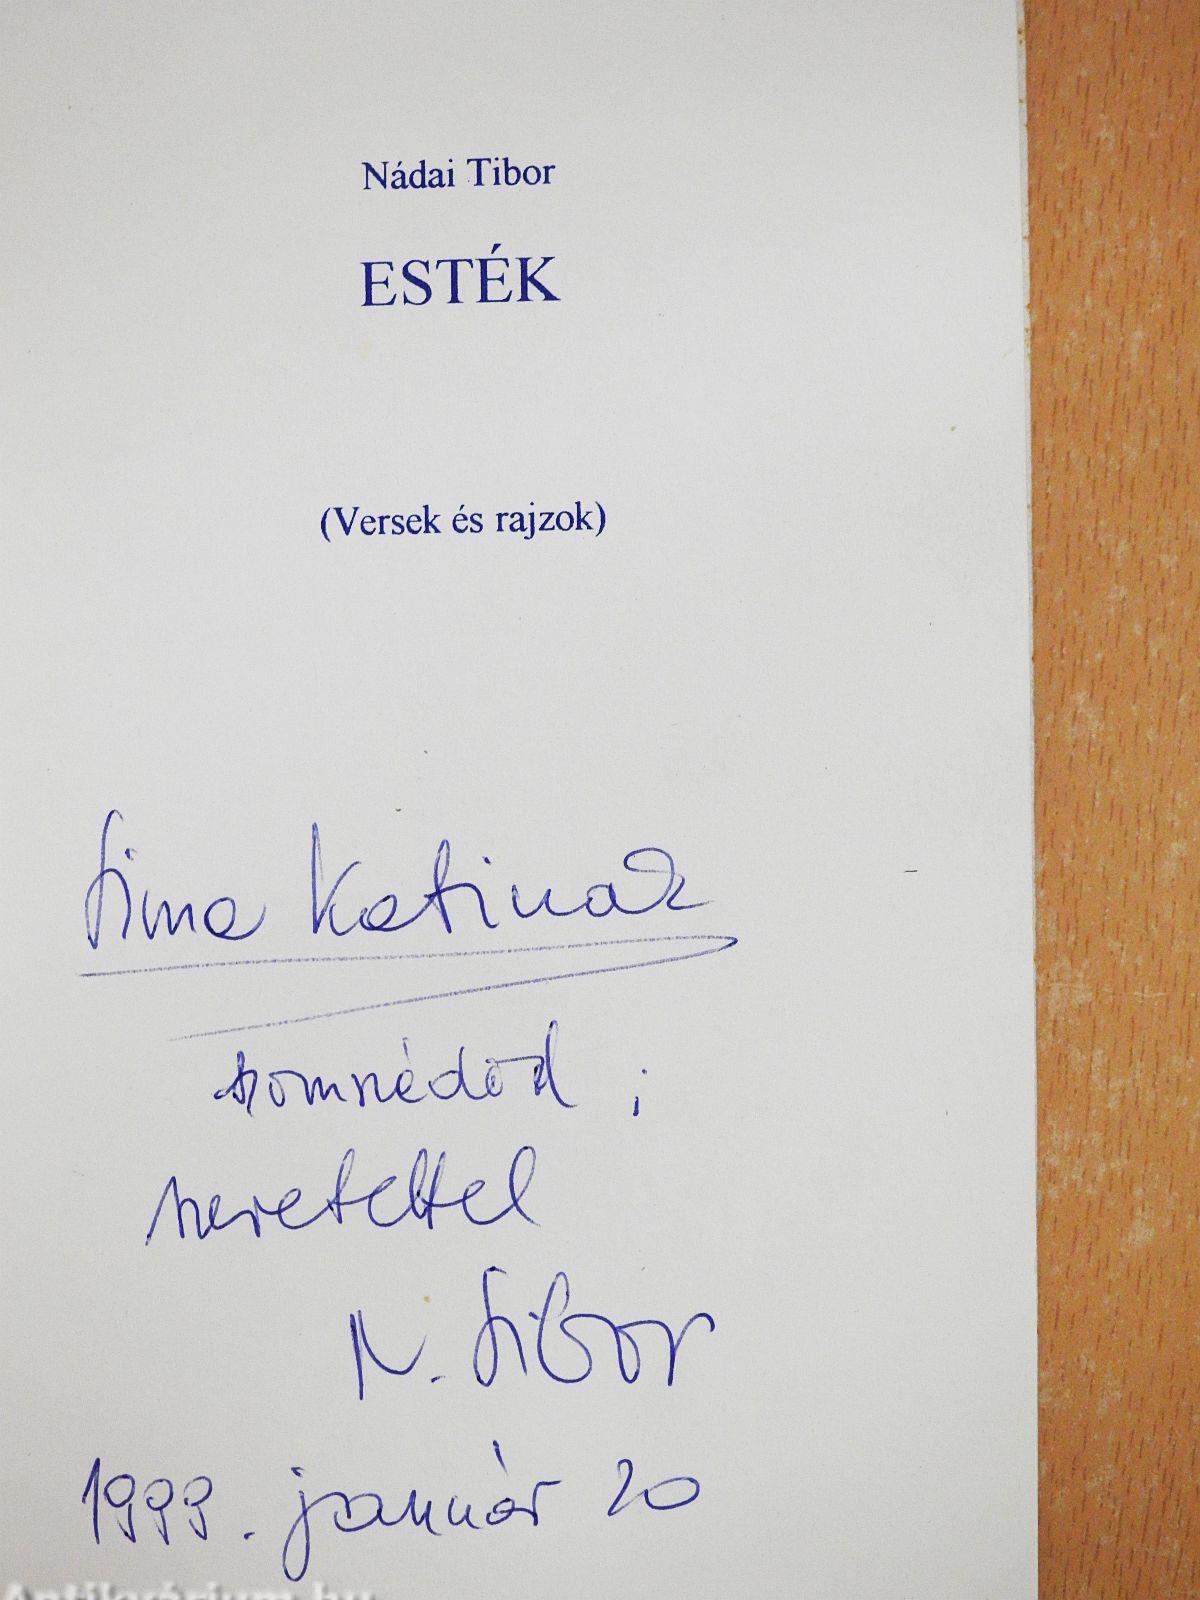 Nádai Tibor
ESTÉK
(Versek és rajzok)
Tima Katinak
szomszédod ;
szeretettel
N. Tibor
1999. január 20
Antikvárium.hu